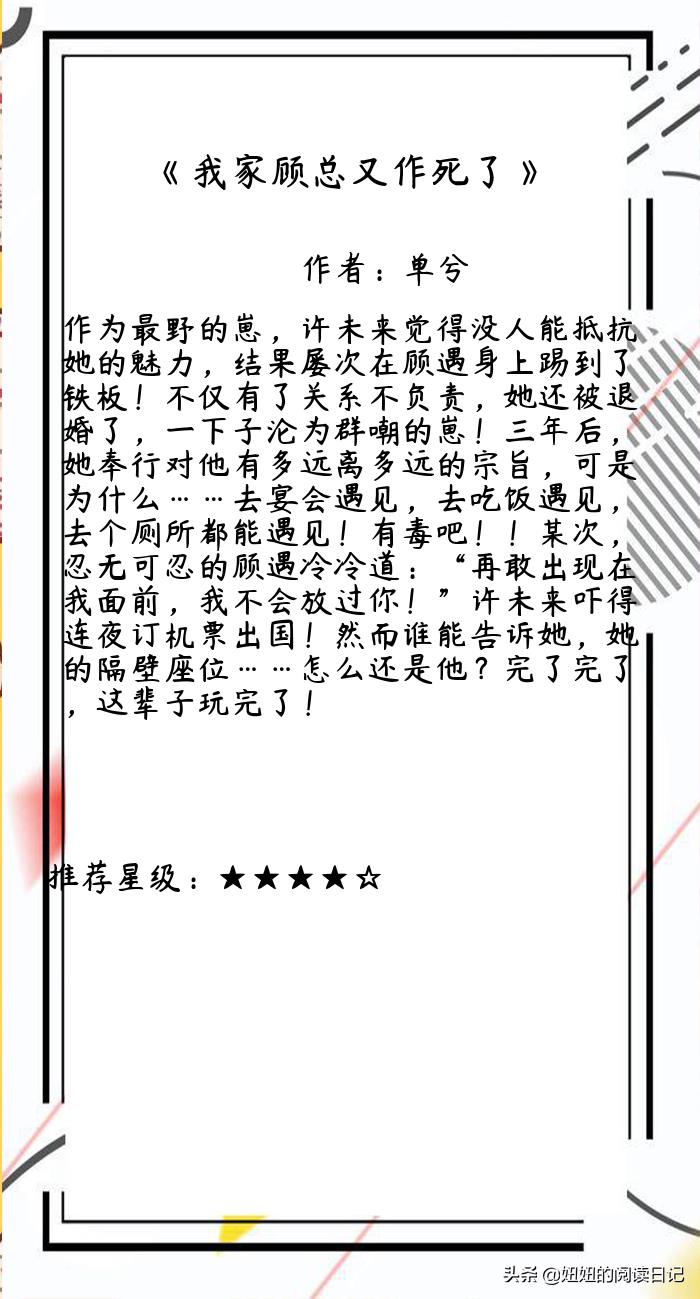 《我家顾总又作死了》
作者：单兮
作为最野的崽，许未来觉得没人能抵抗
她的魅力，结果屡次在顾遇身上踢到了
铁板！不仅有了关系不负责，她还被退
婚了，一下子沦为群嘲的崽！三年后，
她奉行对他有多远离多远的宗旨，可是
为什么……去宴会遇见，去吃饭遇见，
去个厕所都能遇见！有毒吧！！某次，
忍无可忍的顾遇冷冷道：“再敢出现在
我面前，我不会放过你！”许未来吓得
连夜订机票出国！然而谁能告诉她，她
的隔壁座位……怎么还是他？完了完了
，这辈子玩完了！
推荐星级：★★★★☆
头条 @妞妞的阅读日记